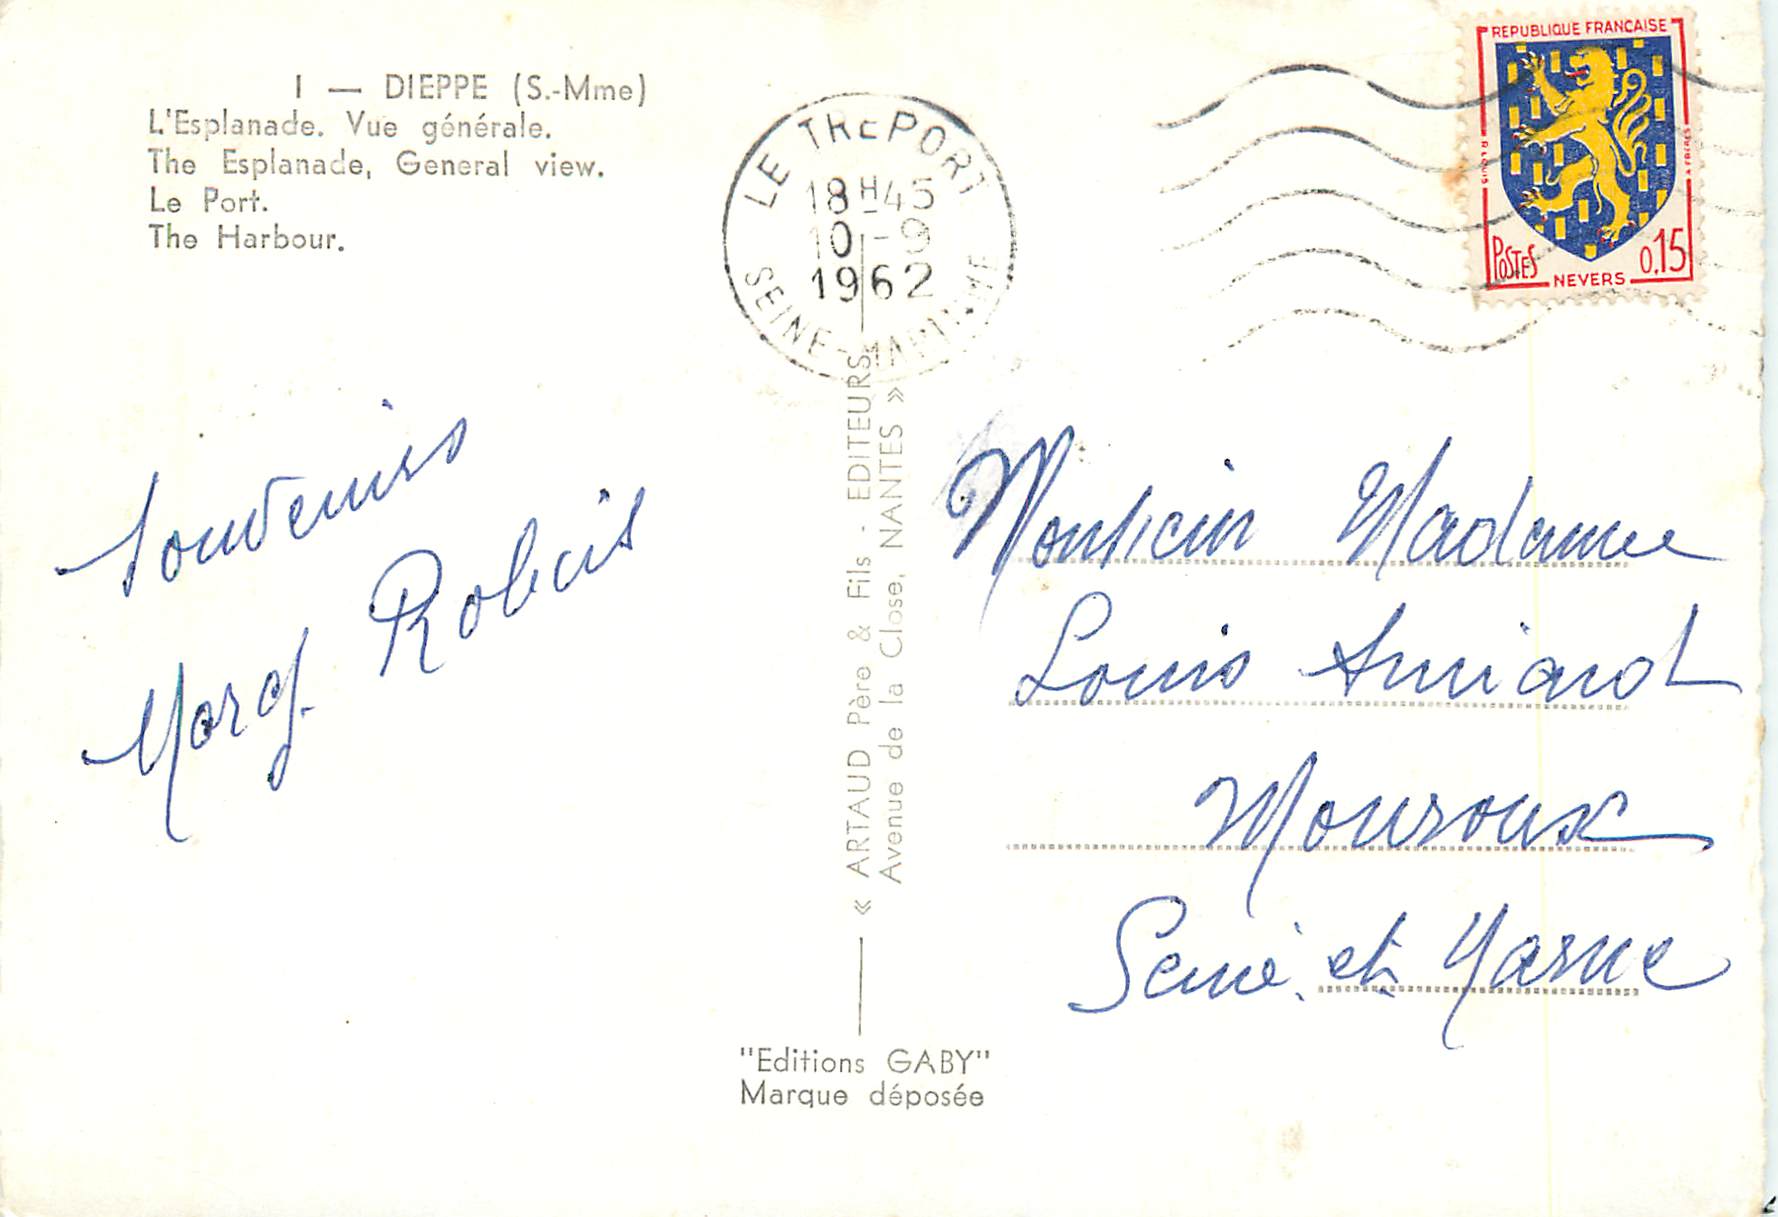 I — DIEPPE (S.-Mme)
L'Esplanade. Vue générale.
The Esplanade, General view.
Le Port.
The Harbour.
LE TREPORT
18H45
10-9
1962
SEINE-MARITIME
REPUBLIQUE FRANÇAISE
POSTES
NEVERS
0,15
Souvenirs
Marcf. Robcis
« ARTAUD Père & Fils - EDITEURS
Avenue de la Close, NANTES »
Monsieur Madame
Louis Amiard
Mouroux
Seine et Marne
"Editions GABY"
Marque déposée